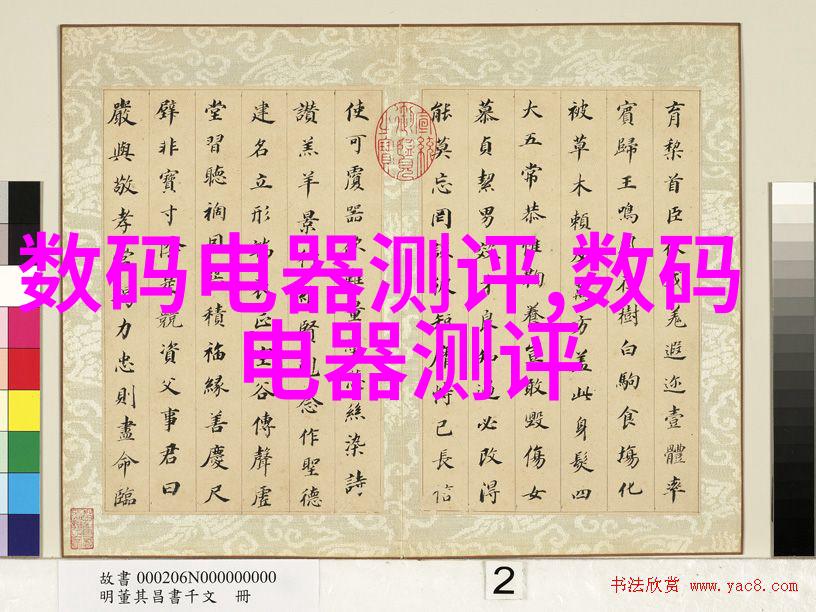 育棃首臣伏戎羌遐迩壹體率
賓歸王鳴在樹白駒食塲化
被草木賴萬方盖此身髮四
大五常恭惟鞠養豈敢毀傷女
慕貞絜男效才良知過必改得
能莫忘罔談彼短靡恃己長信
使可覆器欲難量悲絲染詩
讚羔羊景行維賢剋念作聖德
建名立形端表正空谷傳聲虛
堂習聽禍因惡積福緣善慶尺
璧非寶寸陰是競資父事君曰
嚴與敬孝當竭力忠則盡命臨
数码电器测评,数码
电器测评
故書 000206N000000000
明董其昌書千文 冊
2
书法欣赏 www.yac8.com